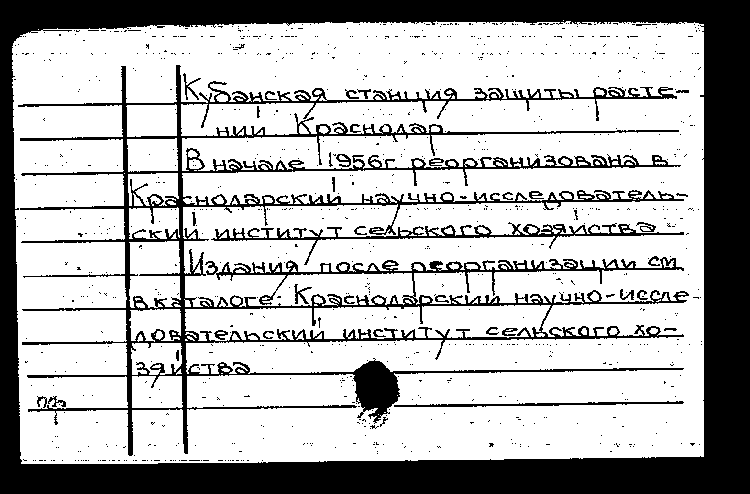 Кубанская станция защиты расте-
ний Краснодар.
В начале 1956г. реорганизована в
Краснодарский научно-исследователь-
ский институт сельского хозяйства.
Издания после реорганизации см.
в каталоге: Краснодарский научно-иссле
довательский институт сельского хо-
зяйства